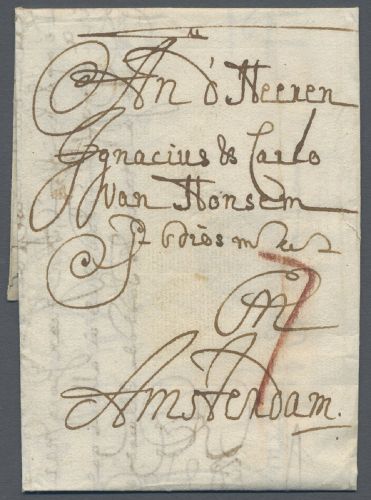 An d'Heeren
Ignacius & Carlo
van Honsem
A
Amsterdam.
7